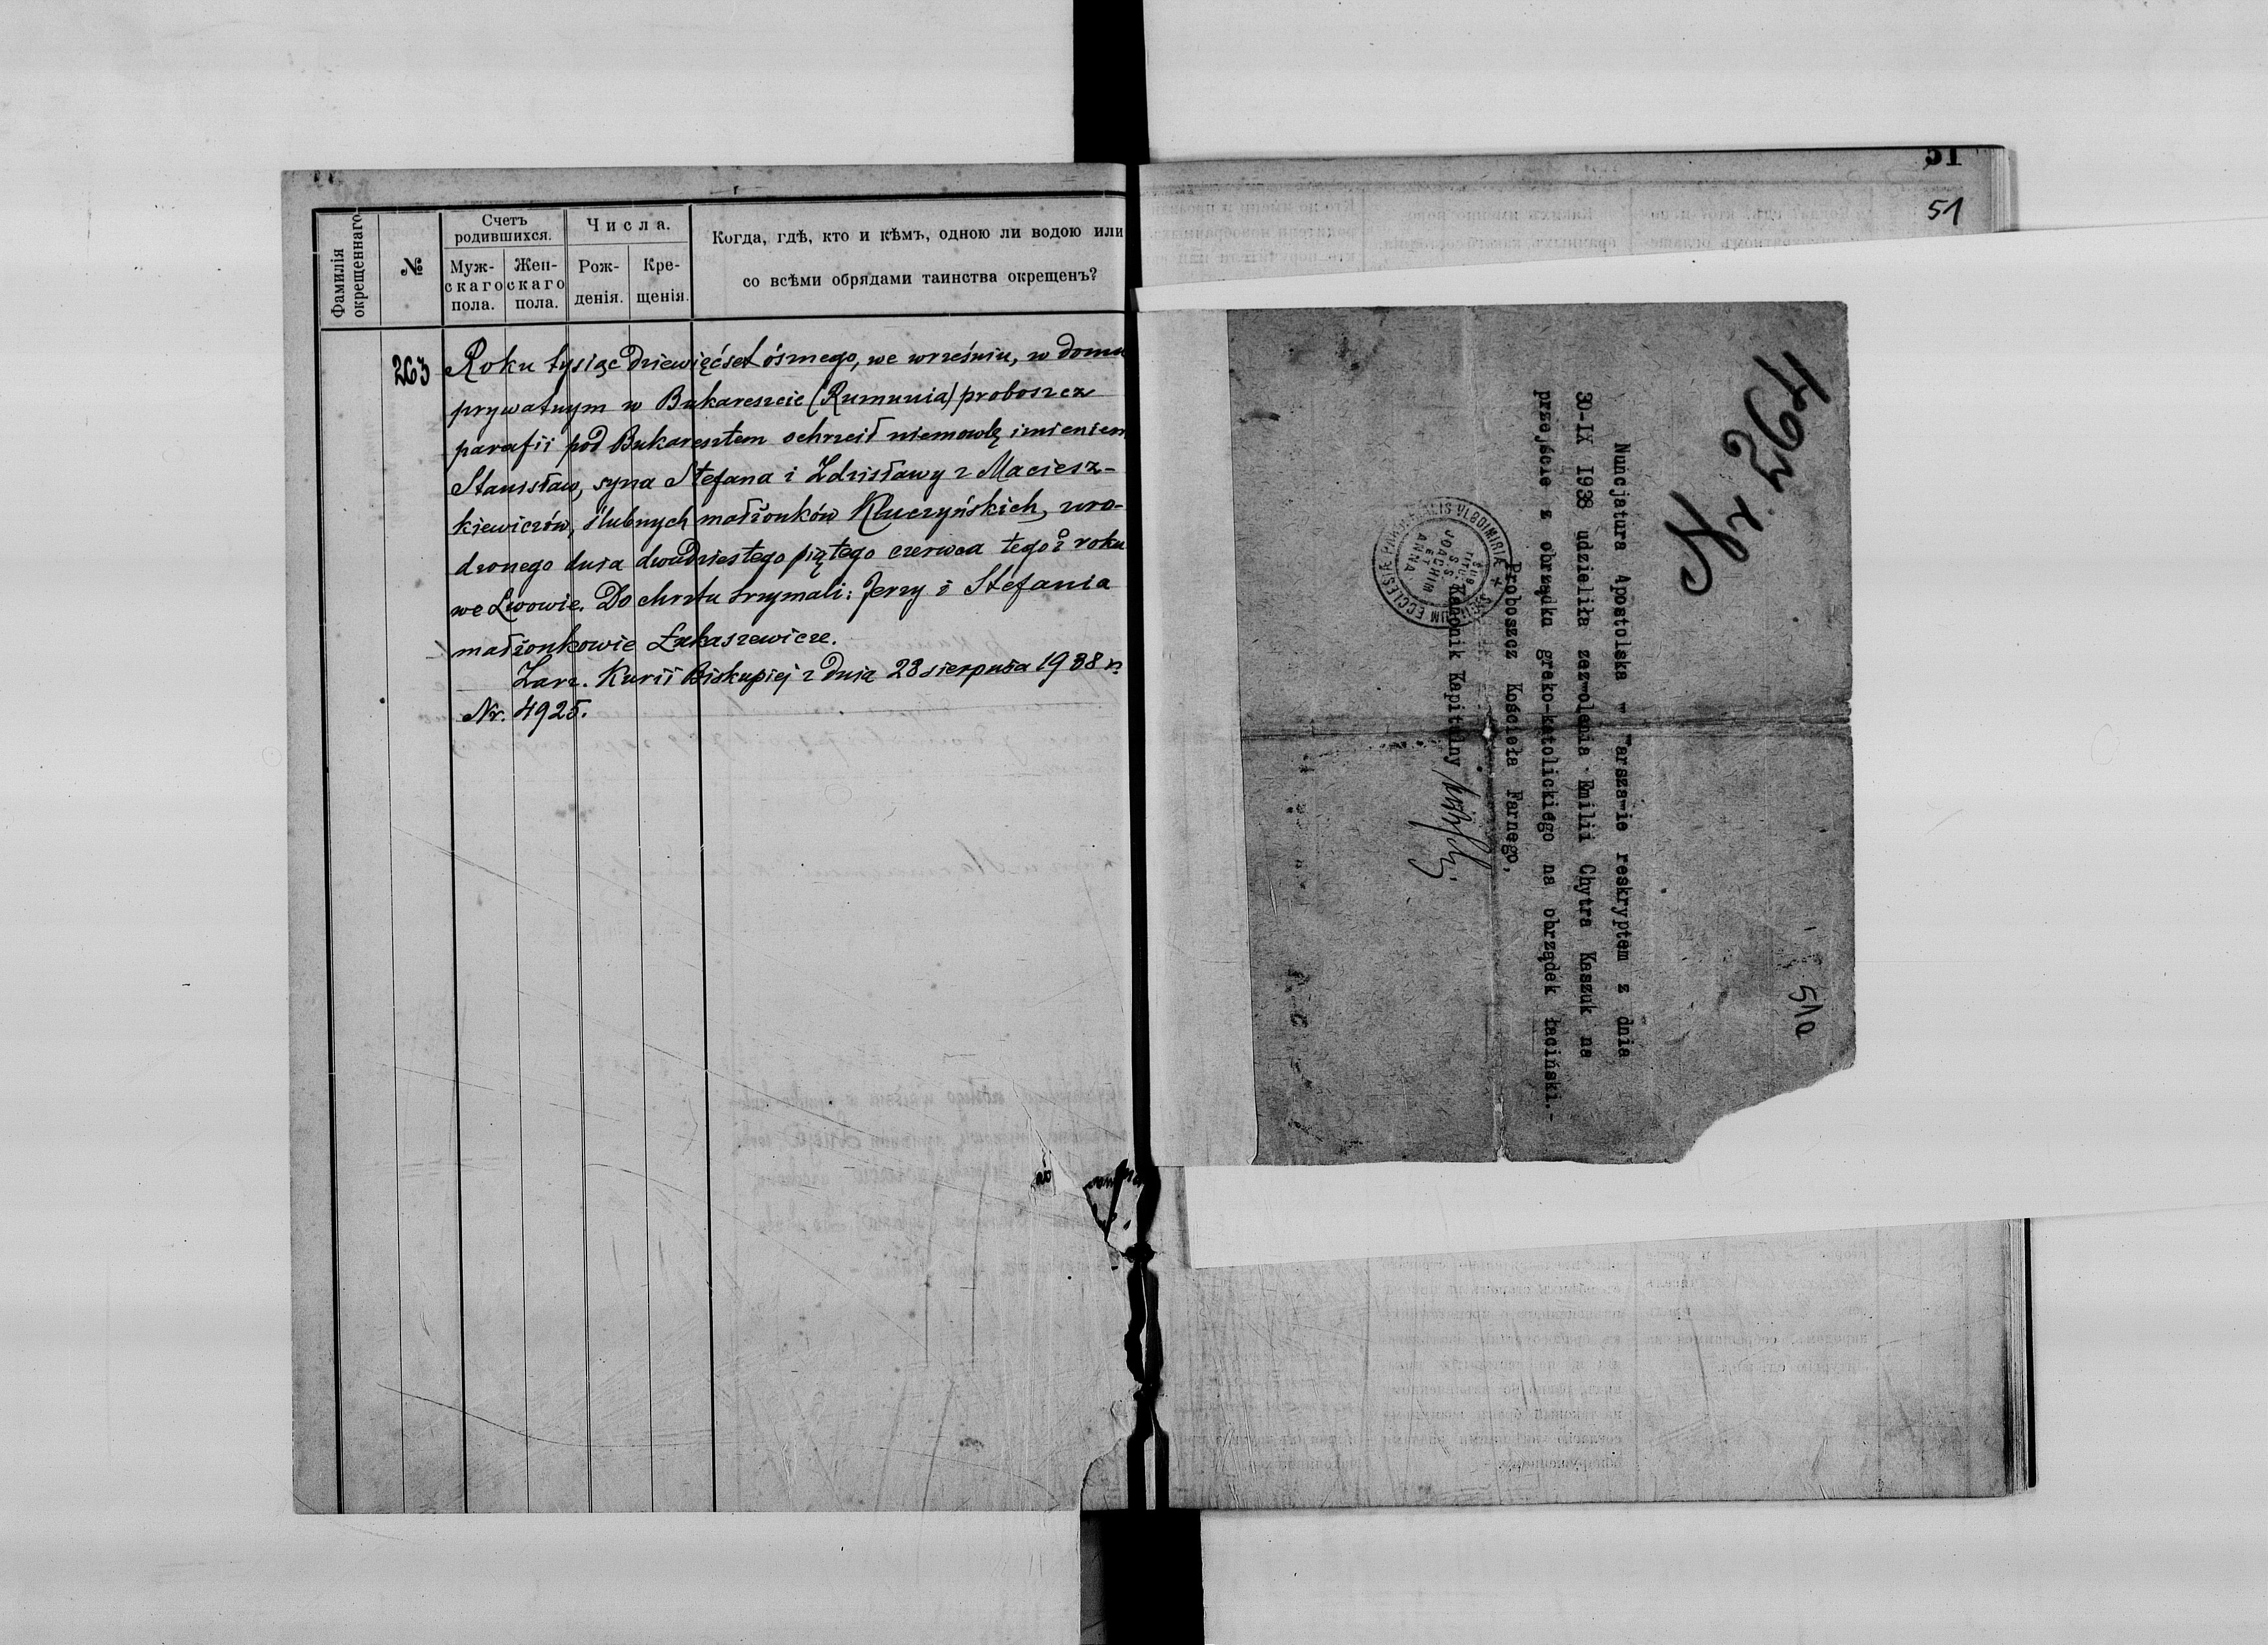 Фамилія окрещеннаго
№
Счетъ родившихся.
Муж-скаго пола.
Жен-скаго пола.
Числа.
Рож-денія.
Кре-щенія.
Когда, гдѣ, кто и кѣмъ, одною ли водою или
со всѣми обрядами таинства окрещенъ?
263
Roku tysiąc dziewięćset ósmego, we wrześniu, w domu
prywatnym w Bukareszcie (Rumunia) proboszcz
parafii pod Bukaresztem ochrzcił niemowlę imieniem
Stanisław, syna Stefana i Zdzisławy z Maciesz-
kiewiczów, ślubnych małżonków Kluczyńskich, uro-
dzonego dnia dwudziestego piątego czerwca tegoż roku
we Lwowie. Do chrztu trzymali: Jerzy i Stefania
małżonkowie Łukaszewicze.
Zarz. Kurii Biskupiej z dnia 23 sierpnia 1938 r.
Nr. 4925.
51
51
Nr 264
51a
Nuncjatura Apostolska w Warszawie reskryptem z dnia
30-IX 1938 udzieliła zezwolenia Emilii Chytra Kaszuk na
przejście z obrządku greko-katolickiego na obrządek łaciński.-
Proboszcz Kościoła Farnego,
Kanonik Kapitulny
SIGILLUM ECCLESIÆ PAROCHIALIS VLODIMIRIÆ
SUB TITU.
S.S.
JOACHIM
ET
ANNA